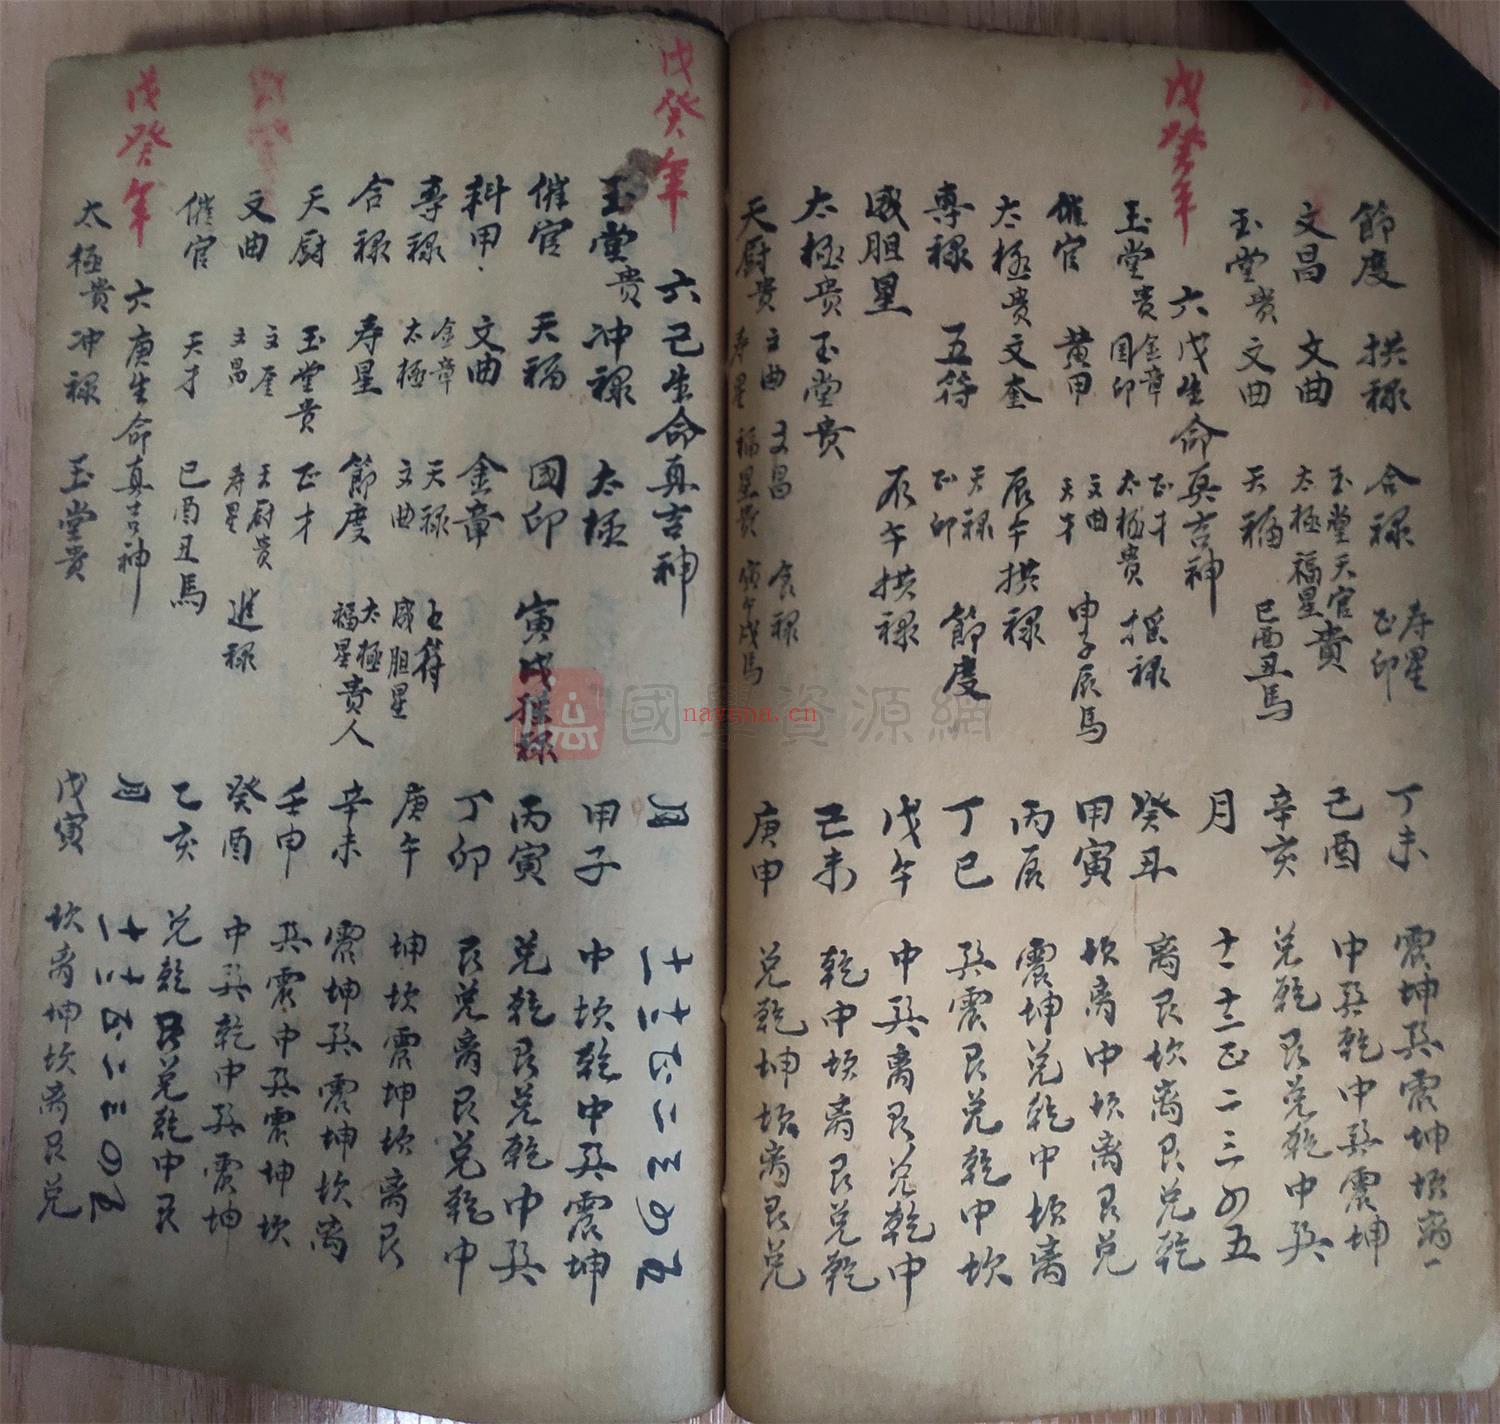 節度 拱禄 合禄 寿星 正印 丁未 震坤巽震坤坎离
文昌 文曲 玉堂天官貴 太極福星 己酉 中巽乾中巽震坤
玉堂貴 文曲 天福 巳酉丑馬 辛亥 兑乾艮兑乾中巽
戊癸年 六戊生命真吉神 月 十一 十二 正 二 三 四 五
玉堂貴 金章 国印 正才 太極貴 拱禄 癸丑 离艮坎离艮兑乾
催官 黄甲 文曲 天才 申子辰馬 甲寅 坎离中坎离艮兑
太極貴 文奎 辰午拱禄 丙辰 震坤兑乾中坎离
專禄 五符 天禄 正印 節度 丁巳 巽震艮兑乾中坎
威胆星 辰午拱禄 戊午 中巽离艮兑乾中
太極貴 玉堂貴 己未 乾中坎离艮兑乾
天厨貴 文曲 寿星 文昌 福星貴 食禄 寅午戌馬 庚申 兑乾坤坎离艮兑
戊癸年 六己生命真吉神 月 十一 十二 正 二 三 四 五
玉堂貴 冲禄 太極 甲子 中坎乾中巽震坤
催官 天福 國印 寅戌拱禄 丙寅 兑乾艮兑乾中巽
科甲 文曲 金章 丁卯 艮兑离艮兑乾中
專禄 金章 太極 天禄 文曲 五符 威胆星 庚午 坤坎震坤坎离艮
合禄 寿星 節度 太極 福星貴人 辛未 震坤巽震坤坎离
天厨 玉堂貴 正才 壬申 巽震中巽震坤坎
文曲 文奎 文昌 天厨貴 寿星 進禄 癸酉 中巽乾中巽震坤
催官 天才 巳酉丑馬 乙亥 兑乾艮兑乾中艮
戊癸年 六庚生命真吉神 月 十一 十二 正 二 三 四 五
太極貴 冲禄 玉堂貴 戊寅 坎离坤坎离艮兑
國學資源網
nayona.cn